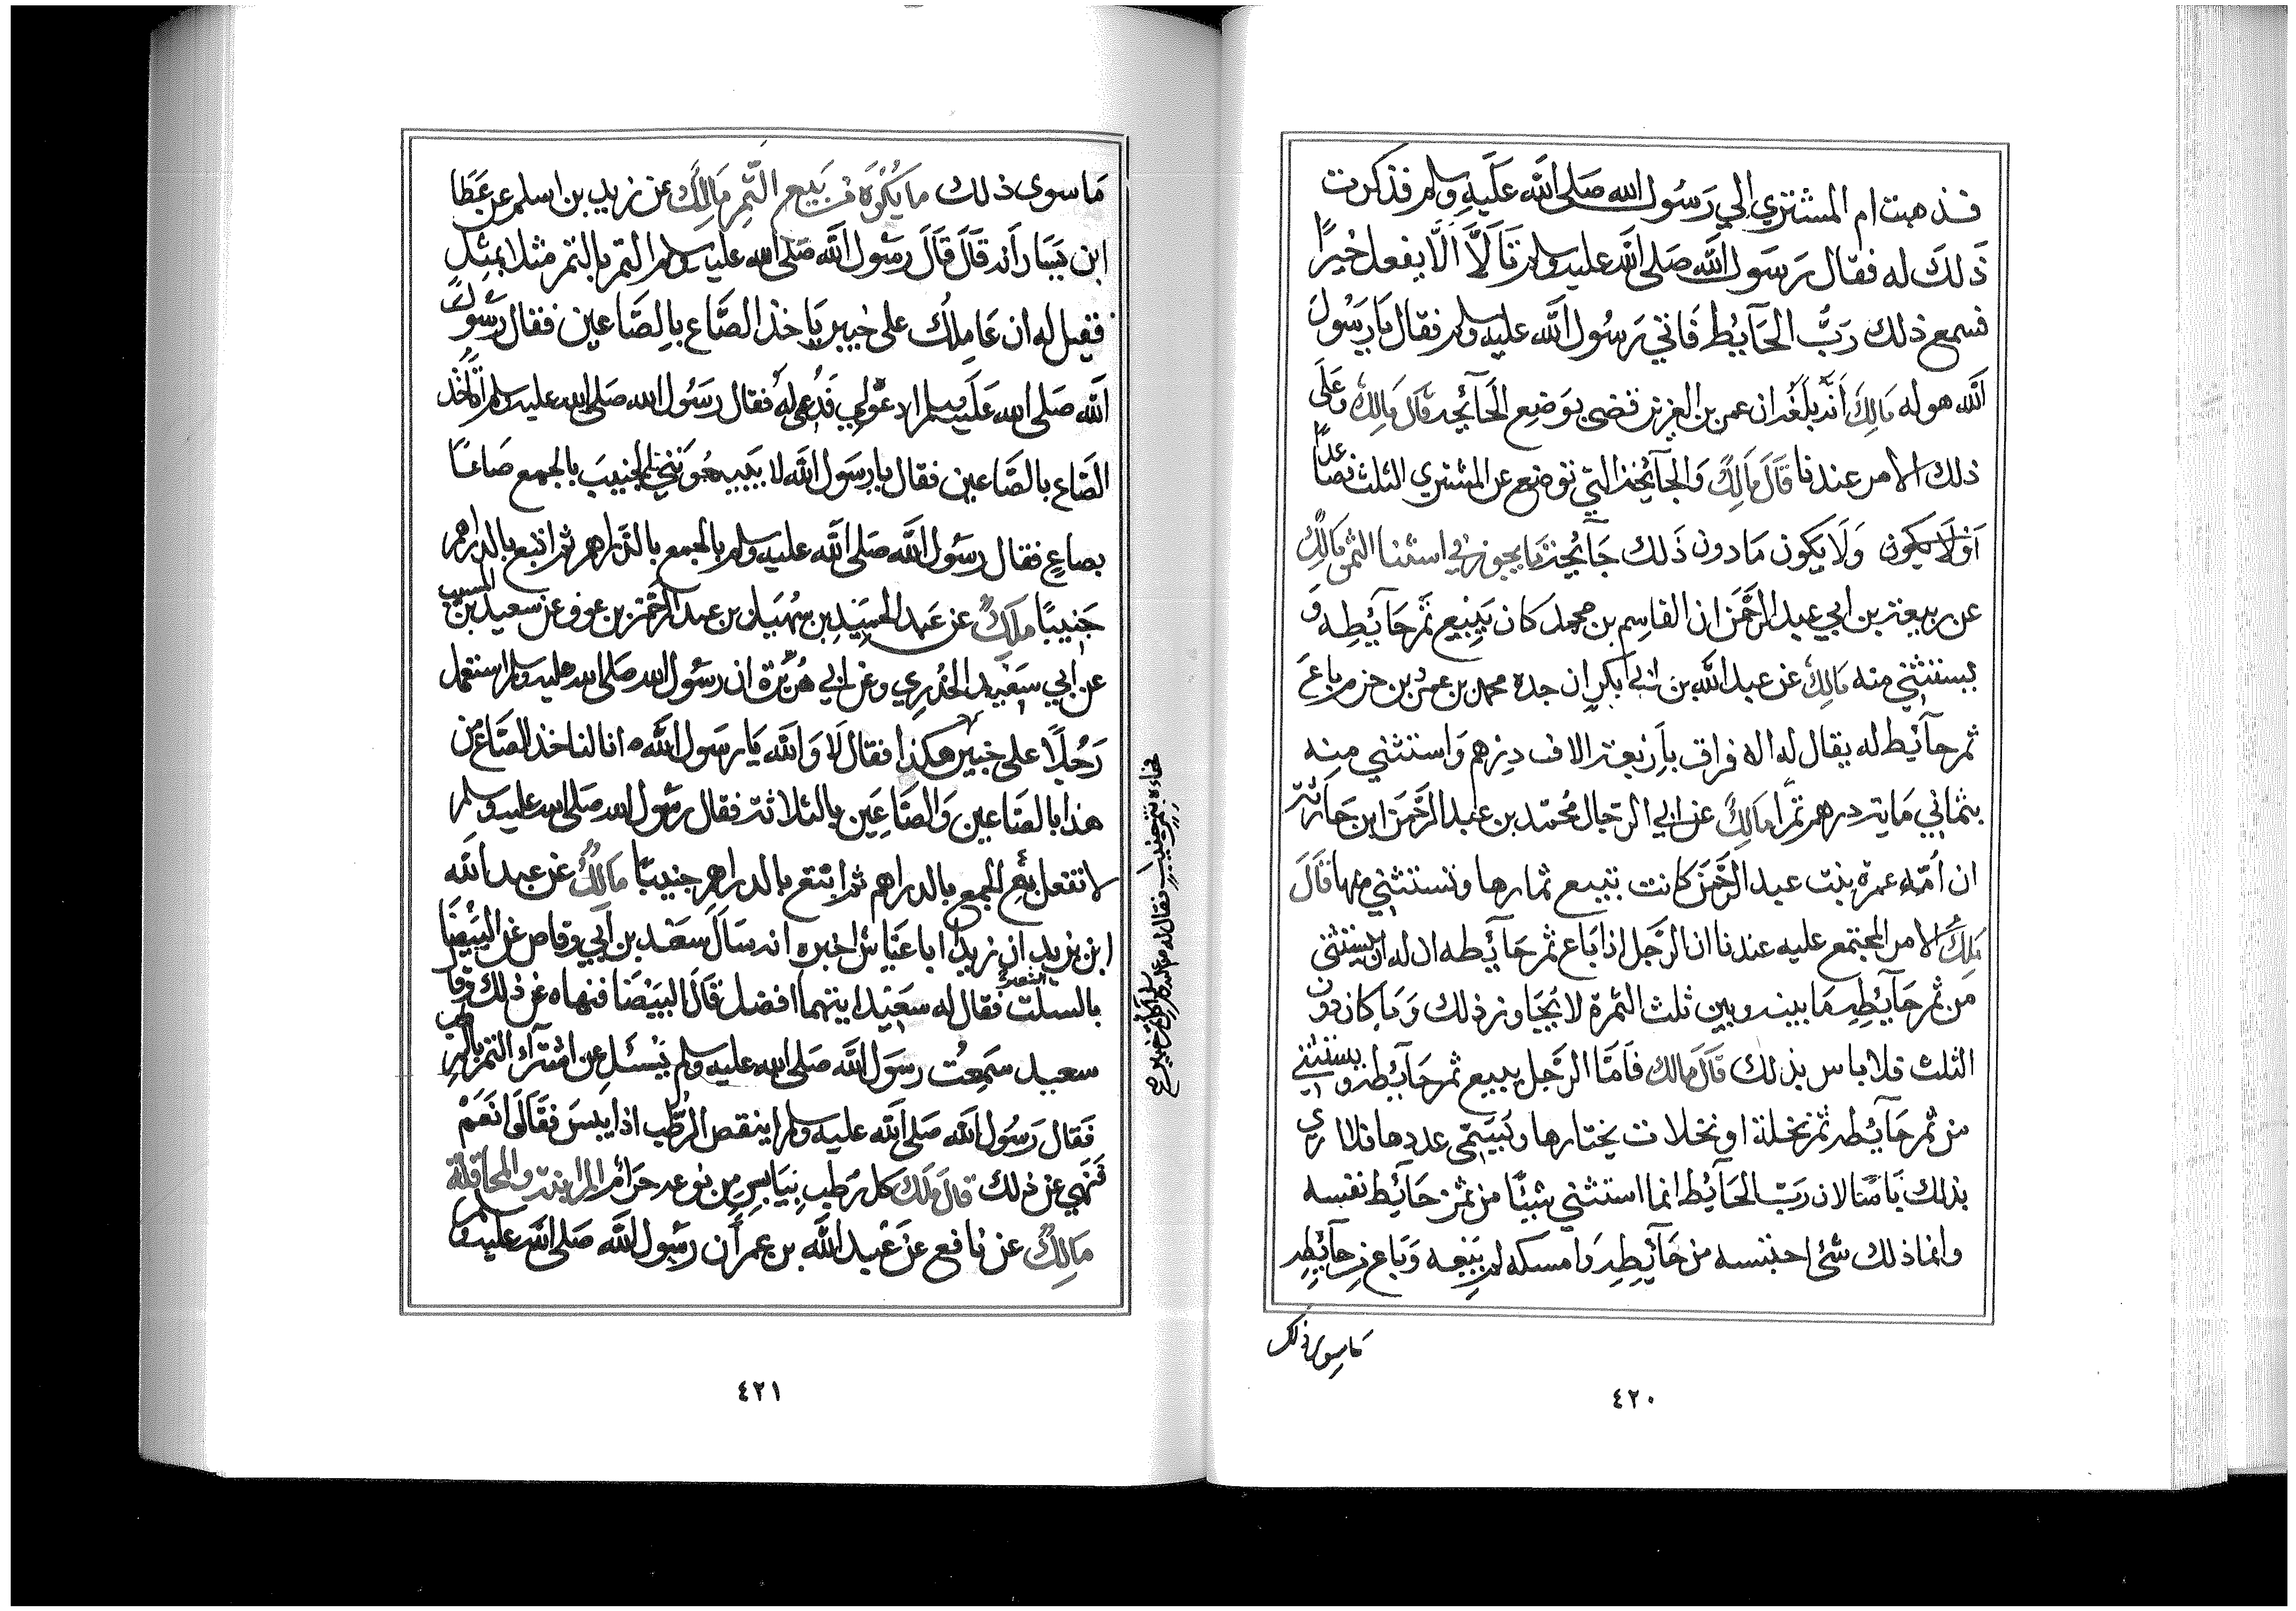 فذهبت ام المشتري الي رسول الله صلى الله عليه وسلم فذكرت
ذلك له فقال رسول الله صلى الله عليه وسلم تالا الا يفعل خيرًا
فسمع ذلك رب الحآيط فاتي رسول الله عليه وسلم فقال يا رسول
الله هو له مالك أنه بلغه ان عمر بن العزيز قضى بوضع الجآئحة قال مالك وعلى
ذلك الامر عندنا قال مالك والجآئحة التي توضع عن المشتري الثلث فصاعدًا
ولا يكون ما دون ذلك جآئحة ما يجوز في استثنا الثمر مالك
عن ربيعة بن ابي عبد الرحمن ان القاسم بن محمد كان يبيع ثمر حآئطه و
يستثني منه مالك عن عبد الله بن ابي بكر ان جده محمد بن عمرو بن حزم باع
ثمر حآئط له يقال له الافراق باربعة الاف درهم واستثني منه
بثماني ماية درهم تمرا مالك عن ابي الرجال محمد بن عبد الرحمن ابن حارثة
ان امه عمرة بنت عبد الرحمن كانت تبيع ثمارها وتستثني منها قال
ملك الامر المجتمع عليه عندنا ان الرجل اذا باع ثمر حآئطه ان له ان يستثني
من ثمر حآئطه ما بينه وبين ثلث الثمرة لا يجاوز ذلك وما كان دون
الثلث فلا باس بذلك قال مالك فاما الرجل يبيع ثمر حآئطه ويستثني
من ثمر حآئطه ثمر نخلة او نخلات يختارها ويسمي عددها فلا اري
بذلك باسا لان رب الحآئط انما استثني شيئا من ثمر حآئط نفسه
وانما ذلك شئ احتبسه من حآئطه وامسكه لم يبعه وباع من حآئطه
ما سوى ذلك
٤٢٠
ما سوى ذلك ما يكره من بيع التمر مالك عن زيد بن اسلم عن عطا
ابن يسار أنه قال قال رسول الله صلى الله عليه وسلم التمر بالتمر مثلا بمثل
فقيل له ان عاملك على خيبر ياخذ الصاع بالصاعين فقال رسول
الله صلى الله عليه وسلم ادعوه لي فدعي له فقال رسول الله صلى الله عليه وسلم اتاخذ
الصاع بالصاعين فقال يا رسول الله لا يبيعونني الجنيب بالجمع صاعا
بصاع فقال رسول الله صلى الله عليه وسلم بع الجمع بالدراهم ثم ابتع بالدراهم
جنيبًا ملك عن عبد الحميد بن سهيل بن عبد الرحمن بن عوف عن سعيد بن المسيب
عن ابي سعيد الخدري وعن ابي هريرة ان رسول الله صلى الله عليه وسلم استعمل
رجلًا على خيبر هكذا فقال لا والله يا رسول الله انا لناخذ الصاع من
هذا بالصاعين والصاعين بالثلاثة فقال رسول الله صلى الله عليه وسلم
لا تفعل بع الجمع بالدراهم ثم ابتع بالدراهم جنيبًا مالك عن عبد الله
ابن يزيد ان زيدا ابا عياش اخبره انه سال سعد بن ابي وقاص عن البيضا
بالسلت فقال له سعيد ايتهما افضل قال البيضا فنهاه عن ذلك وقال
سعيد سمعت رسول الله صلى الله عليه وسلم يسئل عن اشترآء التمر بالرطب
فقال رسول الله صلى الله عليه وسلم اينقص الرطب اذا يبس فقالوا نعم
فنهي عن ذلك قال ملك كل رطب بيابس من نوعه حرام المزابنة والمحاقلة
مالك عن نافع عن عبد الله بن عمر أن رسول الله صلى الله عليه وسلم
فجاءه بتمر جنيب فقال له
٤٢١